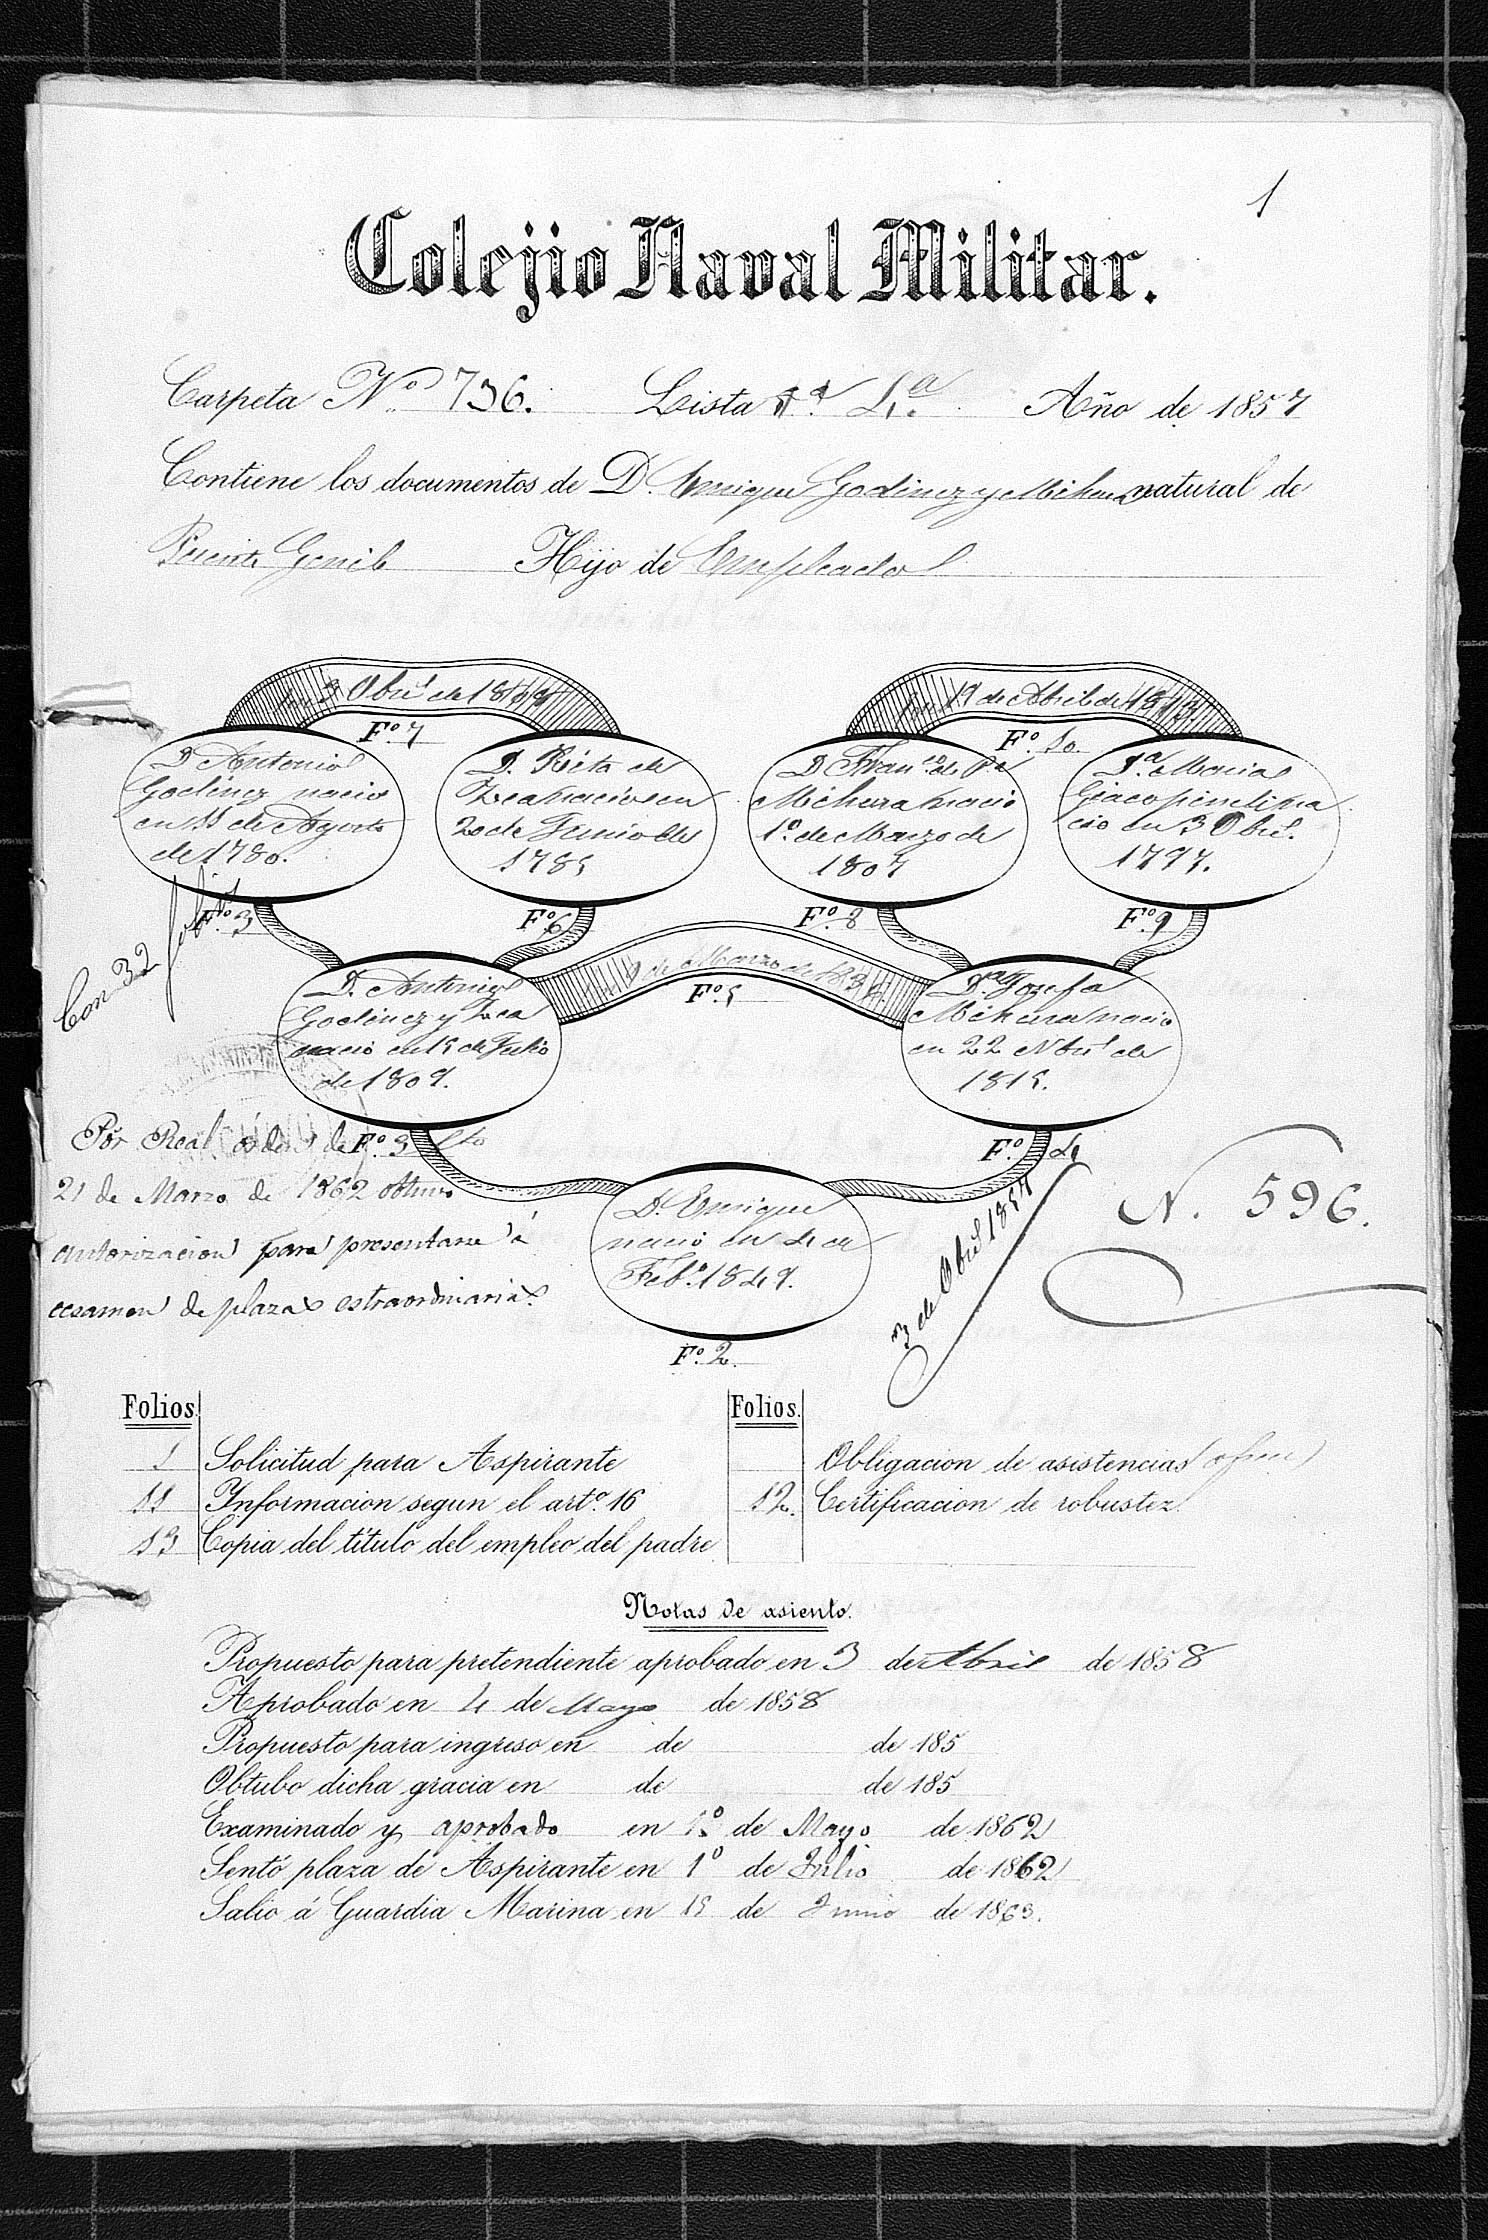 1
Colejio Naval Militar.
Carpeta Nº 736. Lista 4.ª Año de 1857
Contiene los documentos de D. Enrique Godinez y Mihura natural de
Puente Genil Hijo de Empleado
3 Obre de 18
en 19 de Abril de 1813
Fº. 7
Fº. 10.
D Antonio
Godinez nacio
en 11 de Agosto
de 1780.
D. Rita de
Zea nacio en
20 de Junio de
1785
D Franco. de Pa
Mihura nacio
1º. de Marzo de
1807
D.ª Maria
Giacopineli na
cio en 3 Obre.
1797.
Fº. 3
Fº. 6
Fº. 8
Fº. 9
Con 32 folios
en 9 de Marzo de 183
Fº. 5
D. Antonio
Godinez y Zea
nacio en 15 de Julio
de 1809.
Dª Josefa
Mihura nacio
en 22 Nbre de
1815.
Por Real órden de
21 de Marzo de 1862 obtuvo
autorizacion para presentarse á
ecsamen de plazas estraordinarias.
Fº. 3 vto
Fº. 4
D. Enrique
nacio en 4 de
Febº. 1849.
Fº. 2.
3 de Obre 1857
N. 596.
Folios.
1 Solicitud para Aspirante
11 Informacion segun el artº. 16
13 Copia del título del empleo del padre
Folios.
Obligacion de asistencias
12. Certificacion de robustez.
Notas de asiento.
Propuesto para pretendiente aprobado en 3 de Abril de 1858
Aprobado en 4 de Mayo de 1858
Propuesto para ingreso en de de 185
Obtubo dicha gracia en de de 185
Examinado y aprobado en de Mayo de 1862
Sentó plaza de Aspirante en 1º de Julio de 1862
Salio á Guardia Marina en 15 de Junio de 1863.